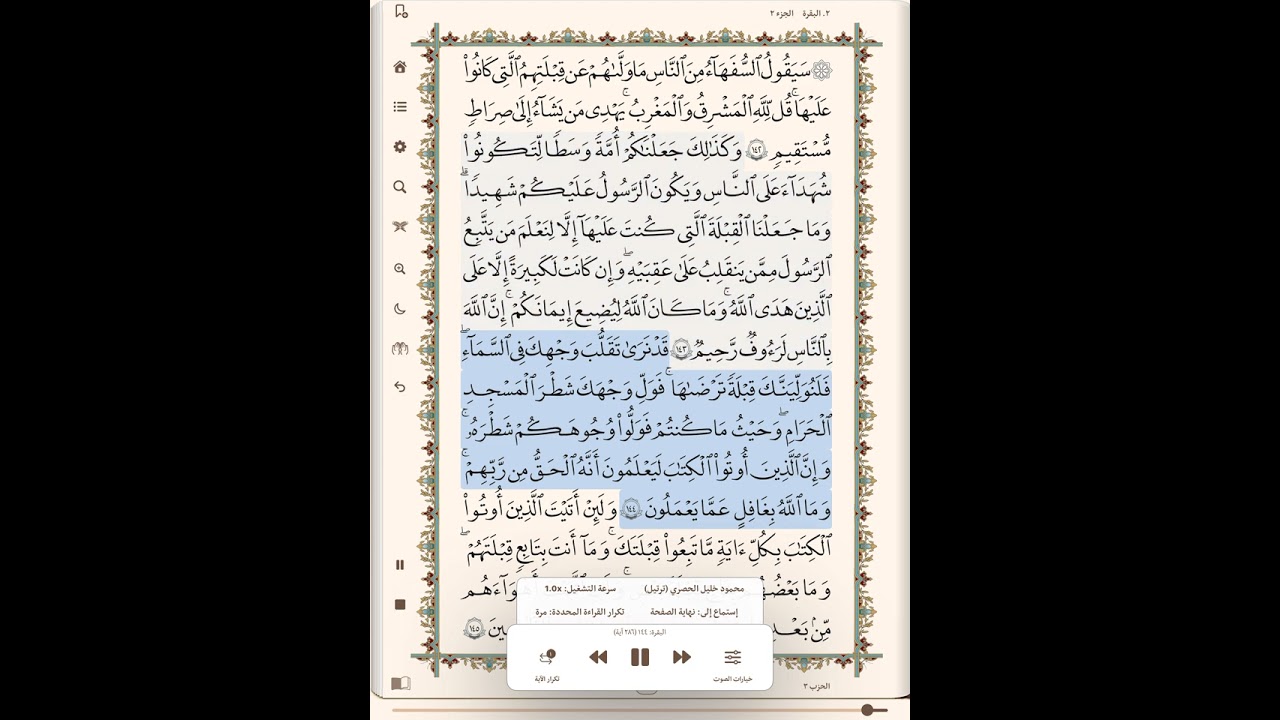 ٢. البقرة الجزء ٢
۞ سَيَقُولُ ٱلسُّفَهَآءُ مِنَ ٱلنَّاسِ مَا وَلَّىٰهُمْ عَن قِبْلَتِهِمُ ٱلَّتِى كَانُوا۟
عَلَيْهَا ۚ قُل لِّلَّهِ ٱلْمَشْرِقُ وَٱلْمَغْرِبُ ۚ يَهْدِى مَن يَشَآءُ إِلَىٰ صِرَٰطٍ
مُّسْتَقِيمٍ ١٤٢ وَكَذَٰلِكَ جَعَلْنَٰكُمْ أُمَّةً وَسَطًا لِّتَكُونُوا۟
شُهَدَآءَ عَلَى ٱلنَّاسِ وَيَكُونَ ٱلرَّسُولُ عَلَيْكُمْ شَهِيدًا ۗ
وَمَا جَعَلْنَا ٱلْقِبْلَةَ ٱلَّتِى كُنتَ عَلَيْهَآ إِلَّا لِنَعْلَمَ مَن يَتَّبِعُ
ٱلرَّسُولَ مِمَّن يَنقَلِبُ عَلَىٰ عَقِبَيْهِ ۚ وَإِن كَانَتْ لَكَبِيرَةً إِلَّا عَلَى
ٱلَّذِينَ هَدَى ٱللَّهُ ۗ وَمَا كَانَ ٱللَّهُ لِيُضِيعَ إِيمَٰنَكُمْ ۚ إِنَّ ٱللَّهَ
بِٱلنَّاسِ لَرَءُوفٌ رَّحِيمٌ ١٤٣ قَدْ نَرَىٰ تَقَلُّبَ وَجْهِكَ فِى ٱلسَّمَآءِ ۖ
فَلَنُوَلِّيَنَّكَ قِبْلَةً تَرْضَىٰهَا ۚ فَوَلِّ وَجْهَكَ شَطْرَ ٱلْمَسْجِدِ
ٱلْحَرَامِ ۚ وَحَيْثُ مَا كُنتُمْ فَوَلُّوا۟ وُجُوهَكُمْ شَطْرَهُۥ ۗ
وَإِنَّ ٱلَّذِينَ أُوتُوا۟ ٱلْكِتَٰبَ لَيَعْلَمُونَ أَنَّهُ ٱلْحَقُّ مِن رَّبِّهِمْ ۗ
وَمَا ٱللَّهُ بِغَٰفِلٍ عَمَّا يَعْمَلُونَ ١٤٤ وَلَئِنْ أَتَيْتَ ٱلَّذِينَ أُوتُوا۟
ٱلْكِتَٰبَ بِكُلِّ ءَايَةٍ مَّا تَبِعُوا۟ قِبْلَتَكَ ۚ وَمَآ أَنتَ بِتَابِعٍ قِبْلَتَهُمْ ۚ
وَمَا
مِّنۢ ١٤٥
محمود خليل الحصري (ترتيل) سرعة التشغيل: 1.0x
إستماع إلى: نهاية الصفحة تكرار القراءة المحددة: مرة
البقرة: ١٤٤ (٢٨٦ آية)
خيارات الصوت تكرار الآية
الحزب ٣